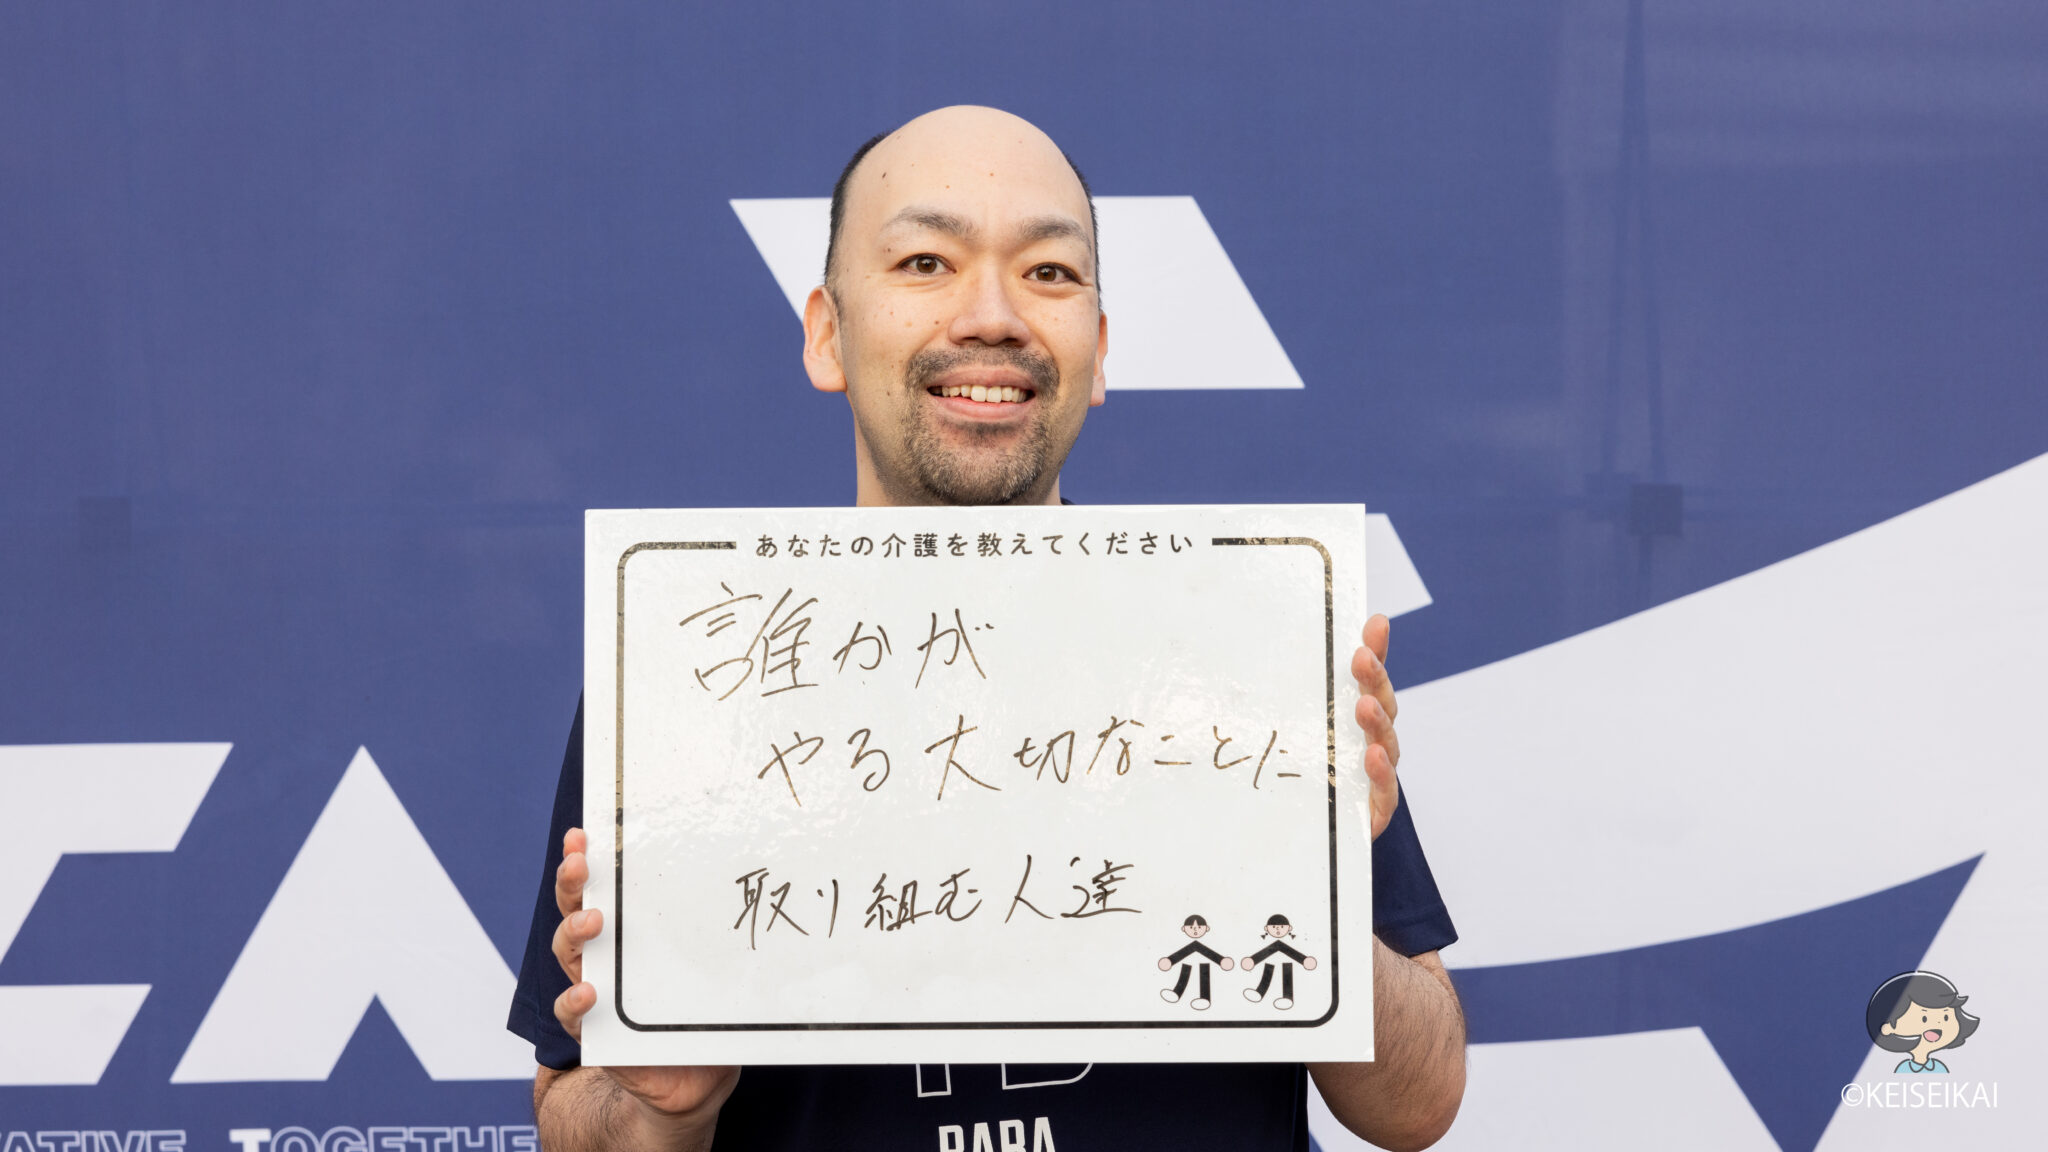 あなたの介護を教えてください
誰かが
やる大切なことに
取り組む人達
BABA
TOGETHE
©KEISEIKAI